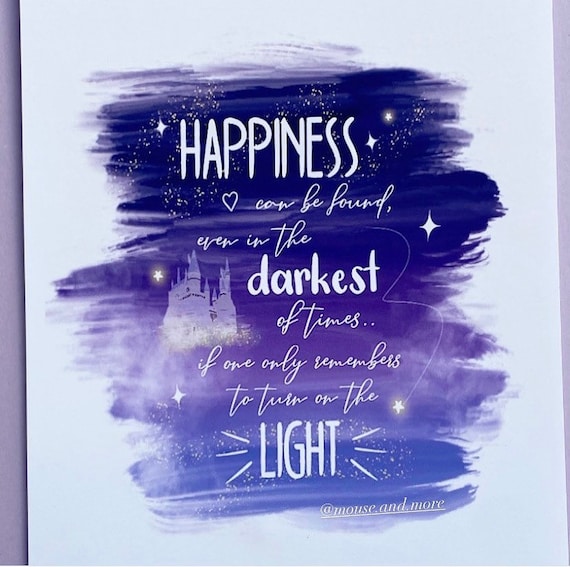 HAPPINESS
can be found,
even in the
darkest
of times..
if one only remembers
to turn on the
LIGHT
@mouse.and.more